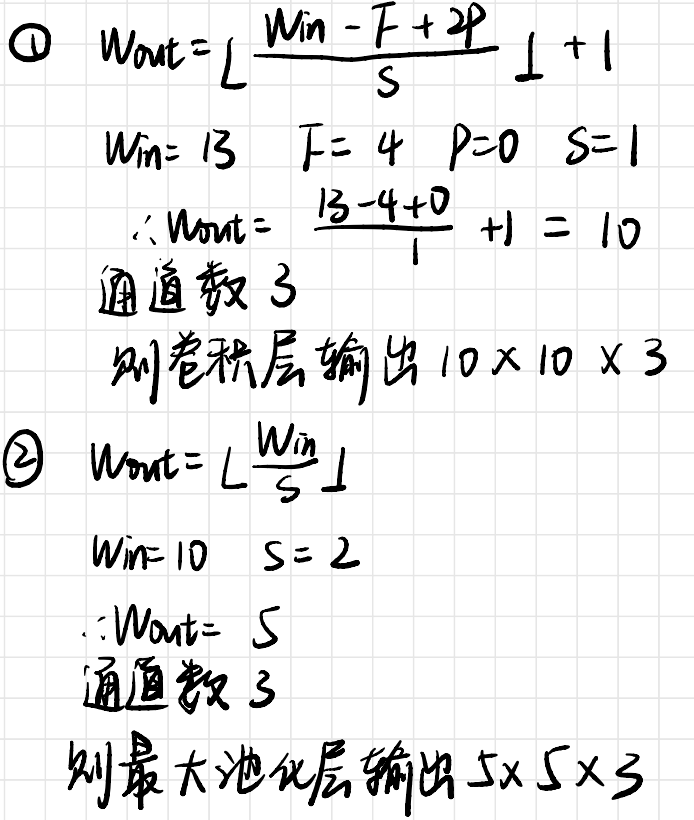 ① Wout = ⌊(Win - F + 2P)/S⌋ + 1
Win = 13 F = 4 P=0 S=1
∴ Wout = (13-4+0)/1 +1 = 10
通道数 3
则卷积层输出 10 × 10 × 3
② Wout = ⌊Win/S⌋
Win=10 S=2
∴ Wout = 5
通道数 3
则最大池化层输出 5×5×3